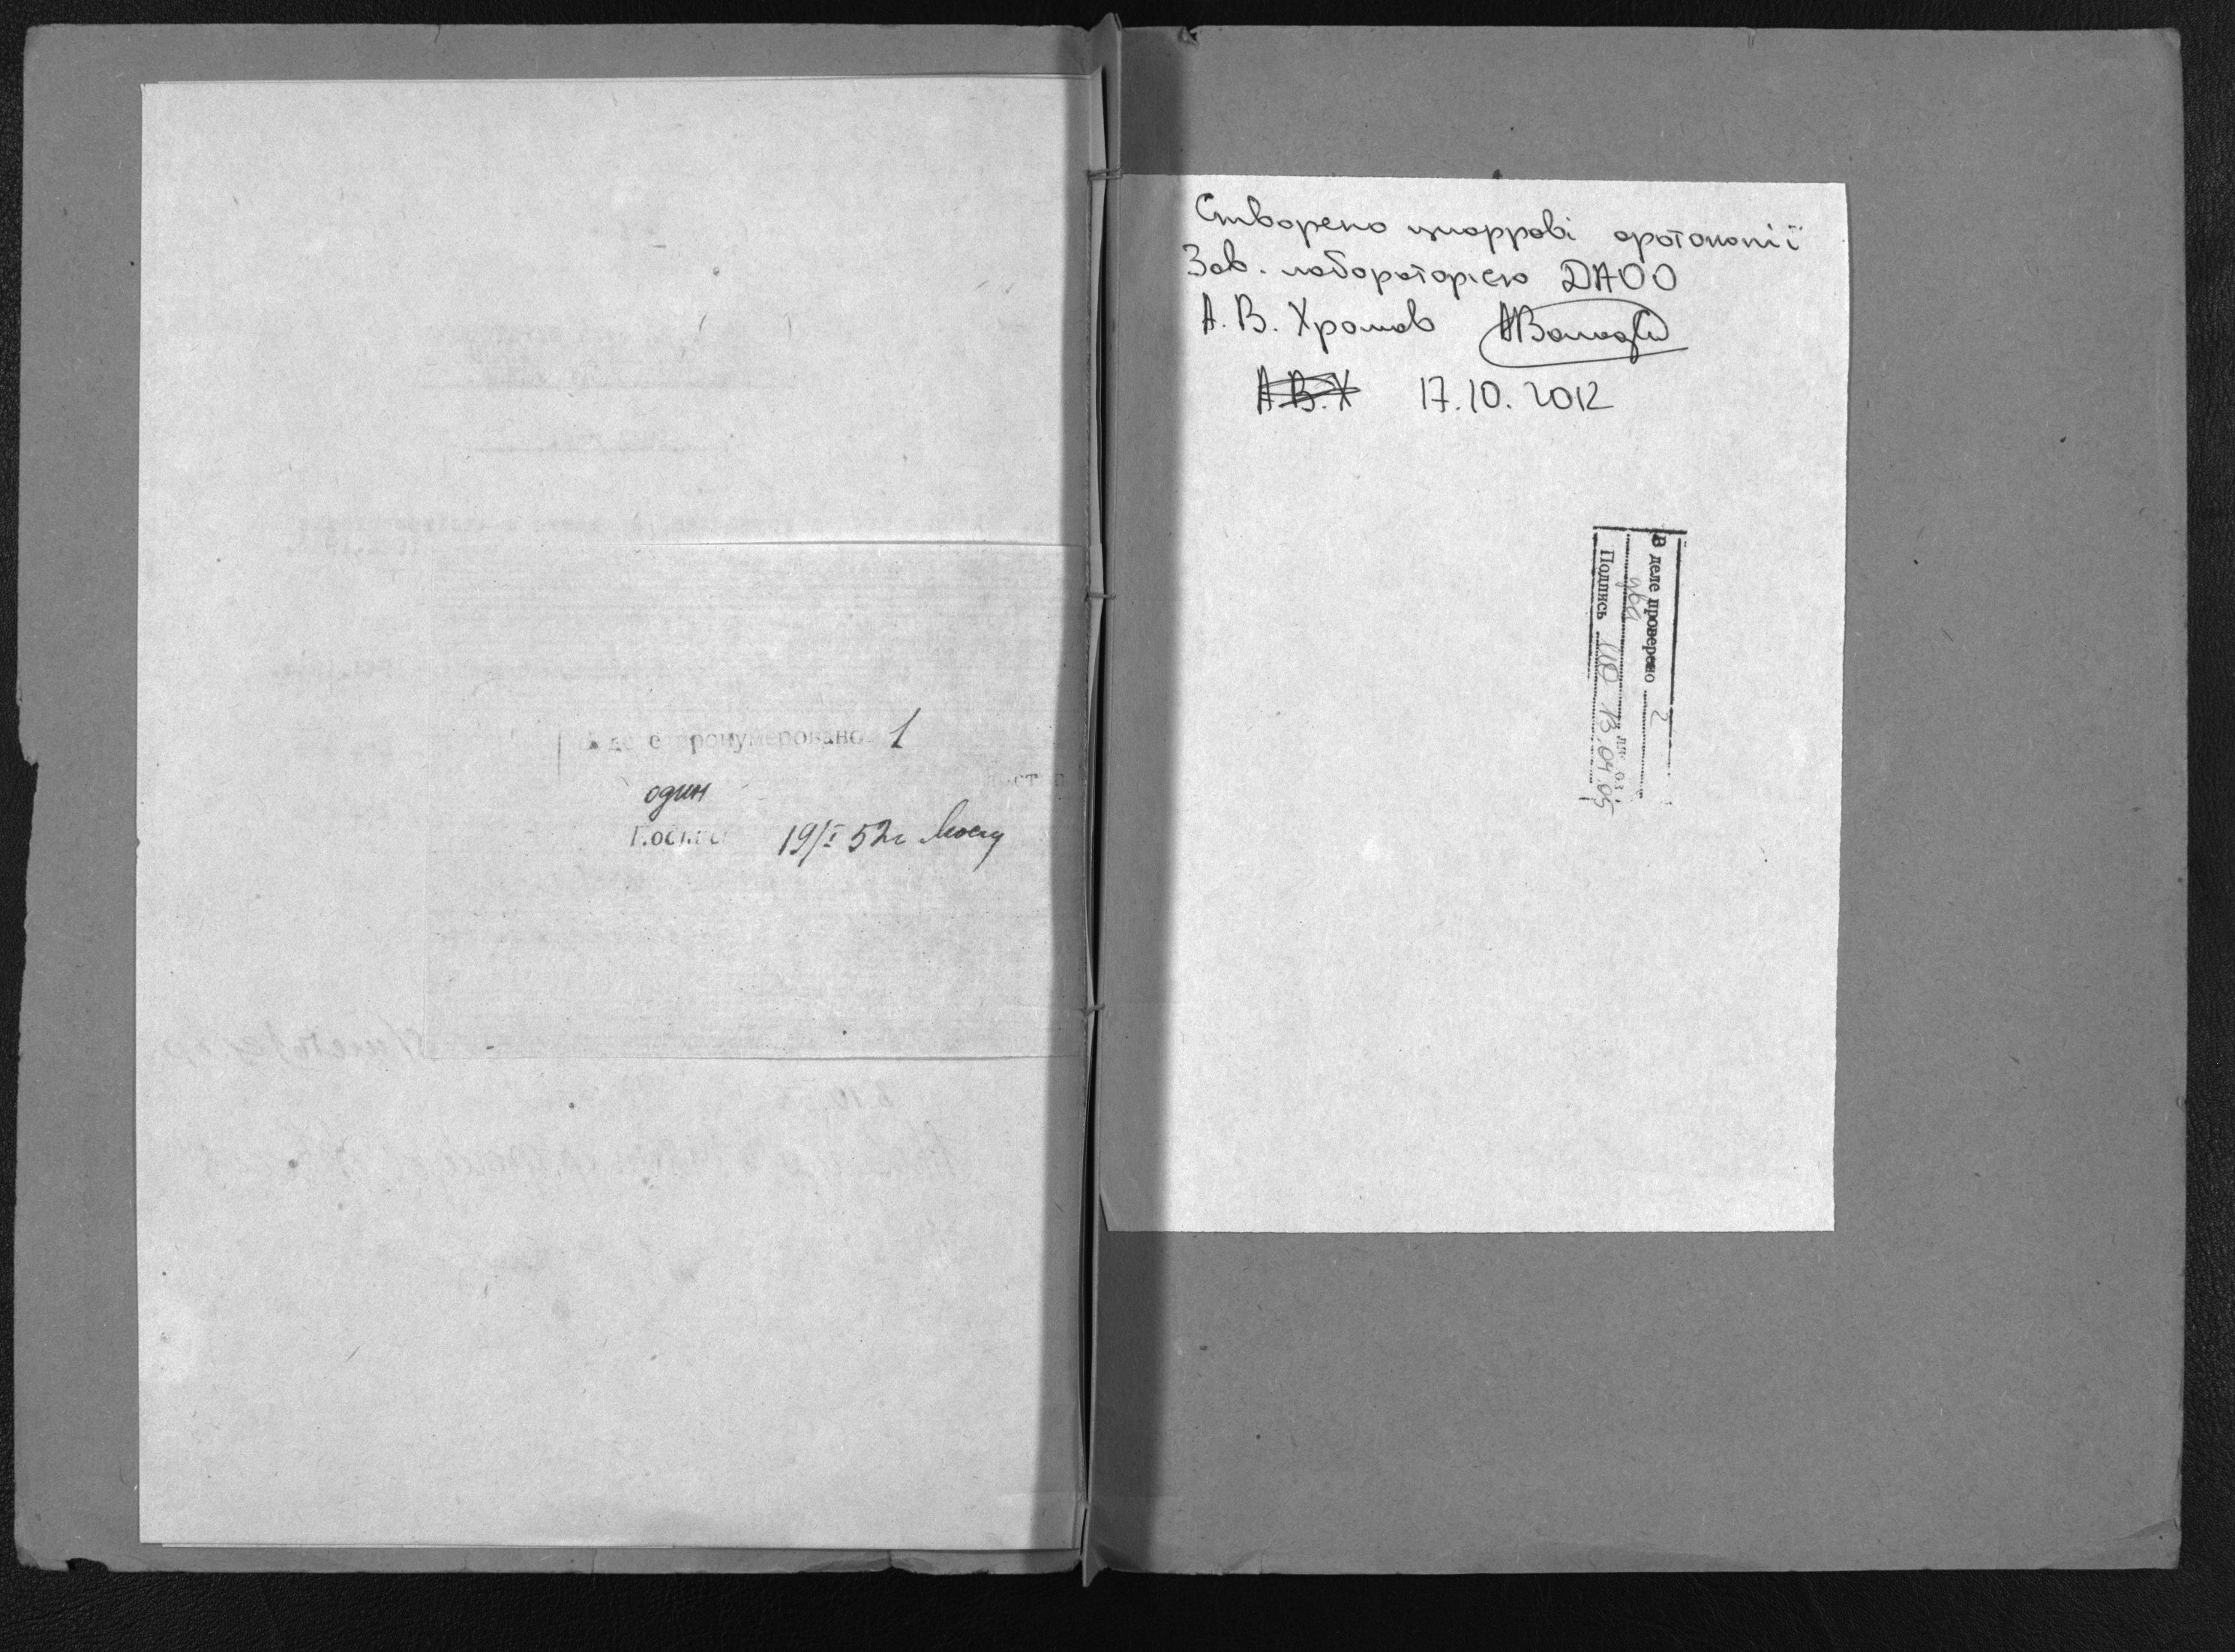 В деле пронумеровано 1
один
19/I 52г
Створено цифрові фотокопії
Зав. лабораторією ДАОО
А. В. Хромов
А.В.Х 17.10.2012
В деле проверено 2
два
Подпись 13.04.05